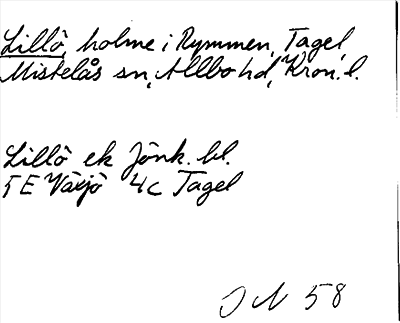 Lillö, holme i Rymmen, Tagel,
Mistelås sn, Allbo hd, Kron. l.
Lillö ek Jönk. bl.
5E Växjö 4c Tagel
58